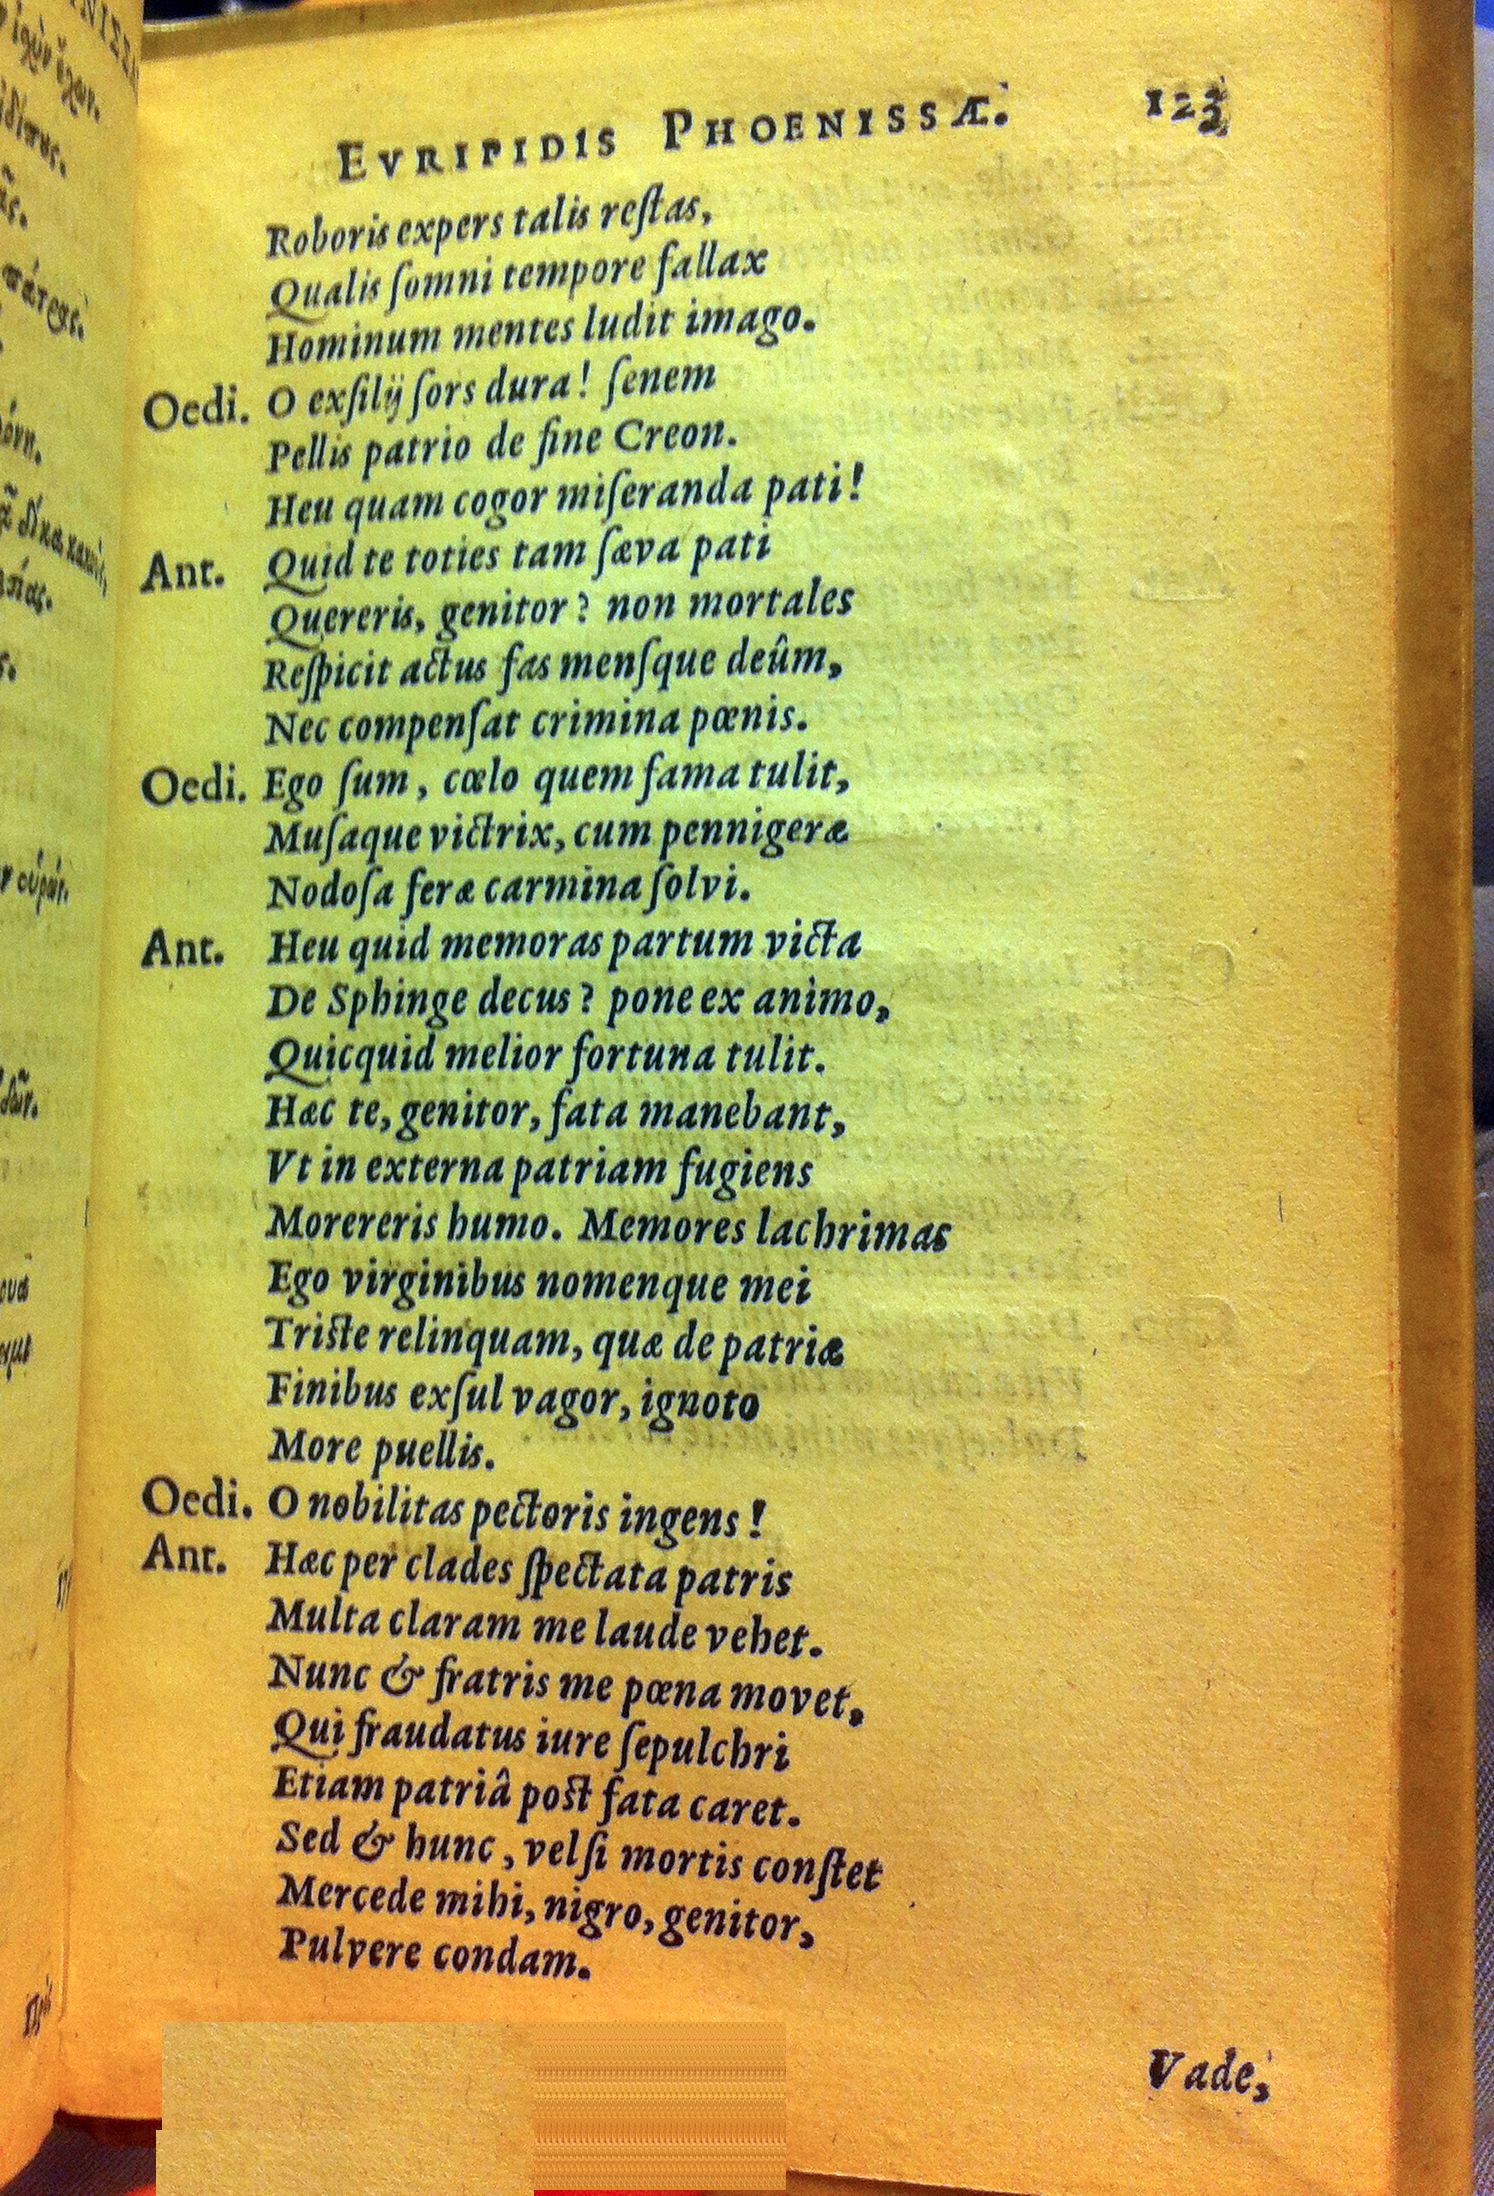 EVRIPIDIS PHOENISSÆ. 123
Roboris expers talis reſtas,
Qualis ſomni tempore fallax
Hominum mentes ludit imago.
Oedi. O exſilij ſors dura! ſenem
Pellis patrio de fine Creon.
Heu quam cogor miſeranda pati!
Ant. Quid te toties tam ſæva pati
Quereris, genitor? non mortales
Reſpicit actus fas menſque deûm,
Nec compenſat crimina pœnis.
Oedi. Ego ſum, cœlo quem fama tulit,
Muſaque victrix, cum pennigeræ
Nodoſa feræ carmina ſolvi.
Ant. Heu quid memoras partum victa
De Sphinge decus? pone ex animo,
Quicquid melior fortuna tulit.
Hæc te, genitor, fata manebant,
Vt in externa patriam fugiens
Morereris humo. Memores lachrimas
Ego virginibus nomenque mei
Triſte relinquam, quæ de patriæ
Finibus exſul vagor, ignoto
More puellis.
Oedi. O nobilitas pectoris ingens!
Ant. Hæc per clades ſpectata patris
Multa claram me laude vehet.
Nunc & fratris me pœna movet,
Qui fraudatus iure ſepulchri
Etiam patriâ poſt fata caret.
Sed & hunc, vel ſi mortis conſtet
Mercede mihi, nigro, genitor,
Pulvere condam.
Vade,